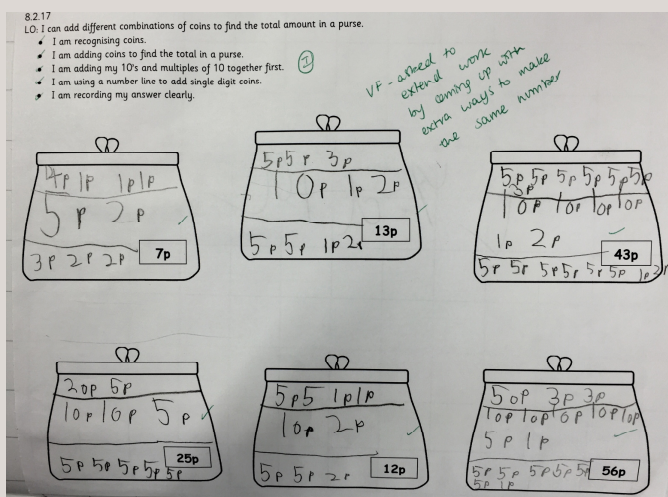 8.2.17
LO: I can add different combinations of coins to find the total amount in a purse.
I am recognising coins.
I am adding coins to find the total in a purse.
I am adding my 10's and multiples of 10 together first.
I am using a number line to add single digit coins.
I am recording my answer clearly.
I
VF - asked to
extend work
by coming up with
extra ways to make
the same number
4p 1p 1p 1p
5p 2p
3p 2p 2p
7p
5p 5p 3p
10p 1p 2p
5p 5p 1p 2p
13p
5p 5p 5p 5p 5p 5p
3p
10p 10p 10p 10p
1p 2p
43p
5p 5p 5p 5p 5p 5p 1p 2p
20p 5p
10p 10p 5p
5p 5p 5p 5p 5p
25p
5p 5 1p 1p
10p 2p
5p 5p 2p
12p
50p 3p 3p
10p 10p 10p 10p 10p
5p 1p
5p 5p 5p 5p 5p
5p 1p
56p